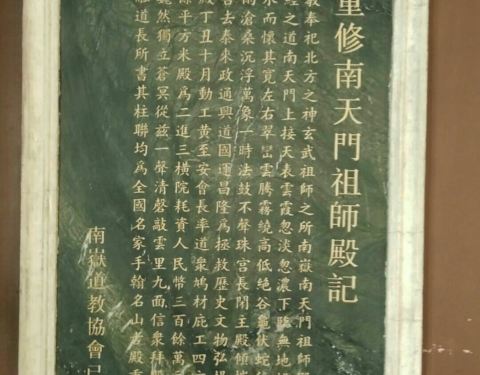 重修南天門祖師殿記
奉祀北方之神玄武祖師之所南嶽南天門祖師殿
經之道南天門上接天表雲霞忽淡忽濃下臨無地
水而懷其寬左右翠巒雲騰霧繞高低絶谷龜伏蛇
滄桑沉浮萬象一時法鼓不聲珠宮長閉主殿傾
去泰來政通興道國運昌隆爲拯救歷史文物弘
殿丁丑十月動工黃至安會長率道衆鳩材庇工四
餘平方米殿爲二進三橫院耗資人民幣三百餘萬
巍然獨立蒼冥從兹一聲清磬敲雲里九面信衆拜
道長所書其柱聯均爲全國名家手翰名山老殿重
南嶽道教協會